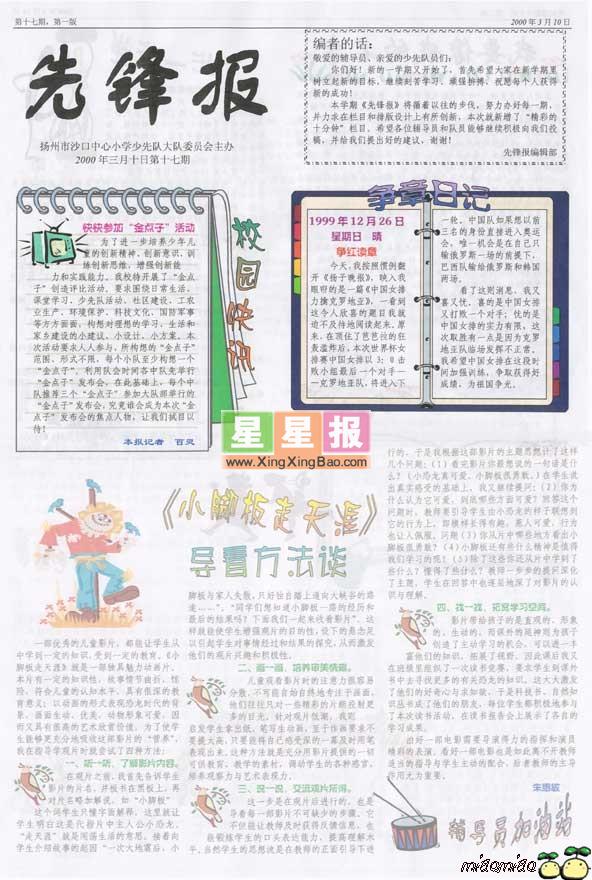 第十七期，第一版
2000 年 3 月 10 日
先锋报
扬州市沙口中心小学少先队大队委员会主办
2000 年三月十日第十七期
编者的话：
敬爱的辅导员、亲爱的少先队员们：
你们好！新的一学期又开始了，首先希望大家在新学期里
树立起新的目标，继续刻苦学习、顽强拚搏，祝愿每个人获得
新的成功！
本学期《先锋报》将循着以往的步伐，努力办好每一期，
并力求在栏目和排版设计上有所创新，本次就新增了“精彩的
十分钟”栏目，希望各位辅导员和队员能够继续积极向我们投
稿，并给我们提出好的建议，谢谢！
先锋报编辑部
校园快讯
快快参加“金点子”活动
为了进一步培养少年儿
童的创新精神、创新意识，训
练创新思维，增强创新能
力和实践能力。我校特开展了“金点
子”创造评比活动。要求围绕日常生活、
课堂学习、少先队活动、社区建设、工农
业生产、环境保护、科技文化、国防军事
等方方面面，构想对理想的学习、生活和
家乡建设的小建议、小设计、小方案。本
次活动要求人人参与，所构想的“金点子”
范围、形式不限，每个小队至少构想一个
“金点子”，利用队会时间各中队先举行
“金点子”发布会，在此基础上，每个中
队推荐三个“金点子”参加大队部举行的
“金点子”发布会，究竟谁会成为本次“金
点子”发布会的焦点人物，让我们拭目以
待！
本报记者　百灵
争章日记
1999 年 12 月 26 日
星期日　晴
争红读章
今天，我按照惯例翻
开《扬子晚报》，映入我
眼帘的是一篇《中国女排
力擒克罗地亚》，一看到
这令人欣喜的题目我就
迫不及待地阅读起来。原
来，在顶住了芭芭拉的狂
轰滥炸后，本次世界杯女
排赛中国女排以 3：0 击
败小组最后一个对手—
—克罗地亚队，将进入下
一轮。中国队如果想以前
三名的身份直接进入奥运
会，唯一机会是在自己只
输俄罗斯一场的前提下，
巴西队输给俄罗斯和韩国
两场。
看了这则消息，我又
喜又忧，喜的是中国女排
又打败一个对手；忧的是
中国女排的实力有限，这
次取胜有一点是因为克罗
地亚队临场发挥不正常。
我希望中国女排在这段时
间加强训练，争取获得好
成绩，为祖国争光。
星星报
www.XingXingBao.com
《小脚板走天涯》
导看方法谈
一部优秀的儿童影片，都能让学生从
中学到一定的知识，受到一定的教育。《小
脚板走天涯》就是一部独具魅力动画片。
本片有一定的知识性，故事情节曲折、惊
险，符合儿童的认知水平，具有很深的教
育意义；以动画的形式表现恐龙时代的背
景，画面生动、优美，动物形象可爱，因
而又具有很高的艺术欣赏价值。为了使学
生能够更充分地吸收这部影片的“营养”，
我在指导学观片时就尝试了四种方法：
一、听一听，了解影片内容。
在观片之前，我首先告诉学生
影片的片名，并板书在黑板上，再
对片名略加解说。如“小脚板”
这个词学生只懂字面解释，这里就让
学生明白这是代指片中主人公小恐龙。
“走天涯”就是闯荡生活的意思。接着向
学生介绍故事的起因“一次大地震后，小
脚板与家人失散，只好独自踏上通向大峡谷的路
途……”。“同学们想知道小脚板一路的经历和
最后的结果吗？下面我们一起来收看影片”。这
样就能使学生增强观片的目的性，设下的悬念足
以引起学生对事情经过和结果的探究，从而激发
他们的观片兴趣和积极性。
二、画一画，培养审美情趣。
儿童观看影片时的注意力很容易
分散，不可能自始自终地专注于画面，
他们往往只对一些精彩的片断投射更
多的目光。针对观片低潮，我则
启发学生拿出纸，笔写生动画，至于作画要求不
要提太高，只要能将自己感受深的一幕及时用笔
表现出来，这种方法就是充分用影片提供的一切
可供教育、教学的素材，调动学生的各种感官，
培养观察力与艺术表现力。
三、说一说，交流观片所得。
这一步是在观片后进行的，也是
导看每一部影片不可缺少的步骤，它
不但能让教师及时获得反馈信息，也
能锻练学生的口头表达能力，提高理解水平。
当然学生的思想总是在教师的正面引导下进
行的，于是我根据这部影片的主题思想提了这样
几个问题：（1）看完影片你最想说的一句话是什
么？（小恐龙真可爱，小脚板很勇敢。）在学生谈
出真实感受的基础上，我又继续提问：（2）你为
什么认为它可爱，到底哪些方面可爱？回答这个
问题时，教师要引导学生由小恐龙的样子联想到
它的行为上，即模样长得有趣，惹人可爱，行为
也让人佩服。问题（3）你从片中哪些地方看出小
脚板很勇敢？（4）小脚板还有些什么精神是值得
我们学习的呢？（5）除了这些你还从片中学到了
些什么？懂得了些什么？教师一步步的提问深化
了主题，学生在回答中也逐层地深了对影片的认
识与理解。
四、找一找，拓宽学习空间。
影片带给孩子的是直观的、形象
的、生动的，而课外的延伸则为孩子
创造了主动学习的机会，可以进一丰
富他们的知识，拓展了视野。因此课后我又
在班级里组织了一次读书竞赛，要求学生到课外
书中去寻找更多的有关恐龙的知识。这大大激发
了他们的好奇心与求知欲，于是科技书、自然知
识丛书成了他们的朋友，每位学生都积极地参与
了本次读书活动，在读书报告会上展示了各自的
学习成果。
出好一部电影需要导演得力的指挥和演员
精彩的表演，看好一部电影也是如此离不开教师
适当的指导与学生主动的配合，后者教师的主导
作用尤为重要。
朱惠敏
辅导员加油站
miaomiao